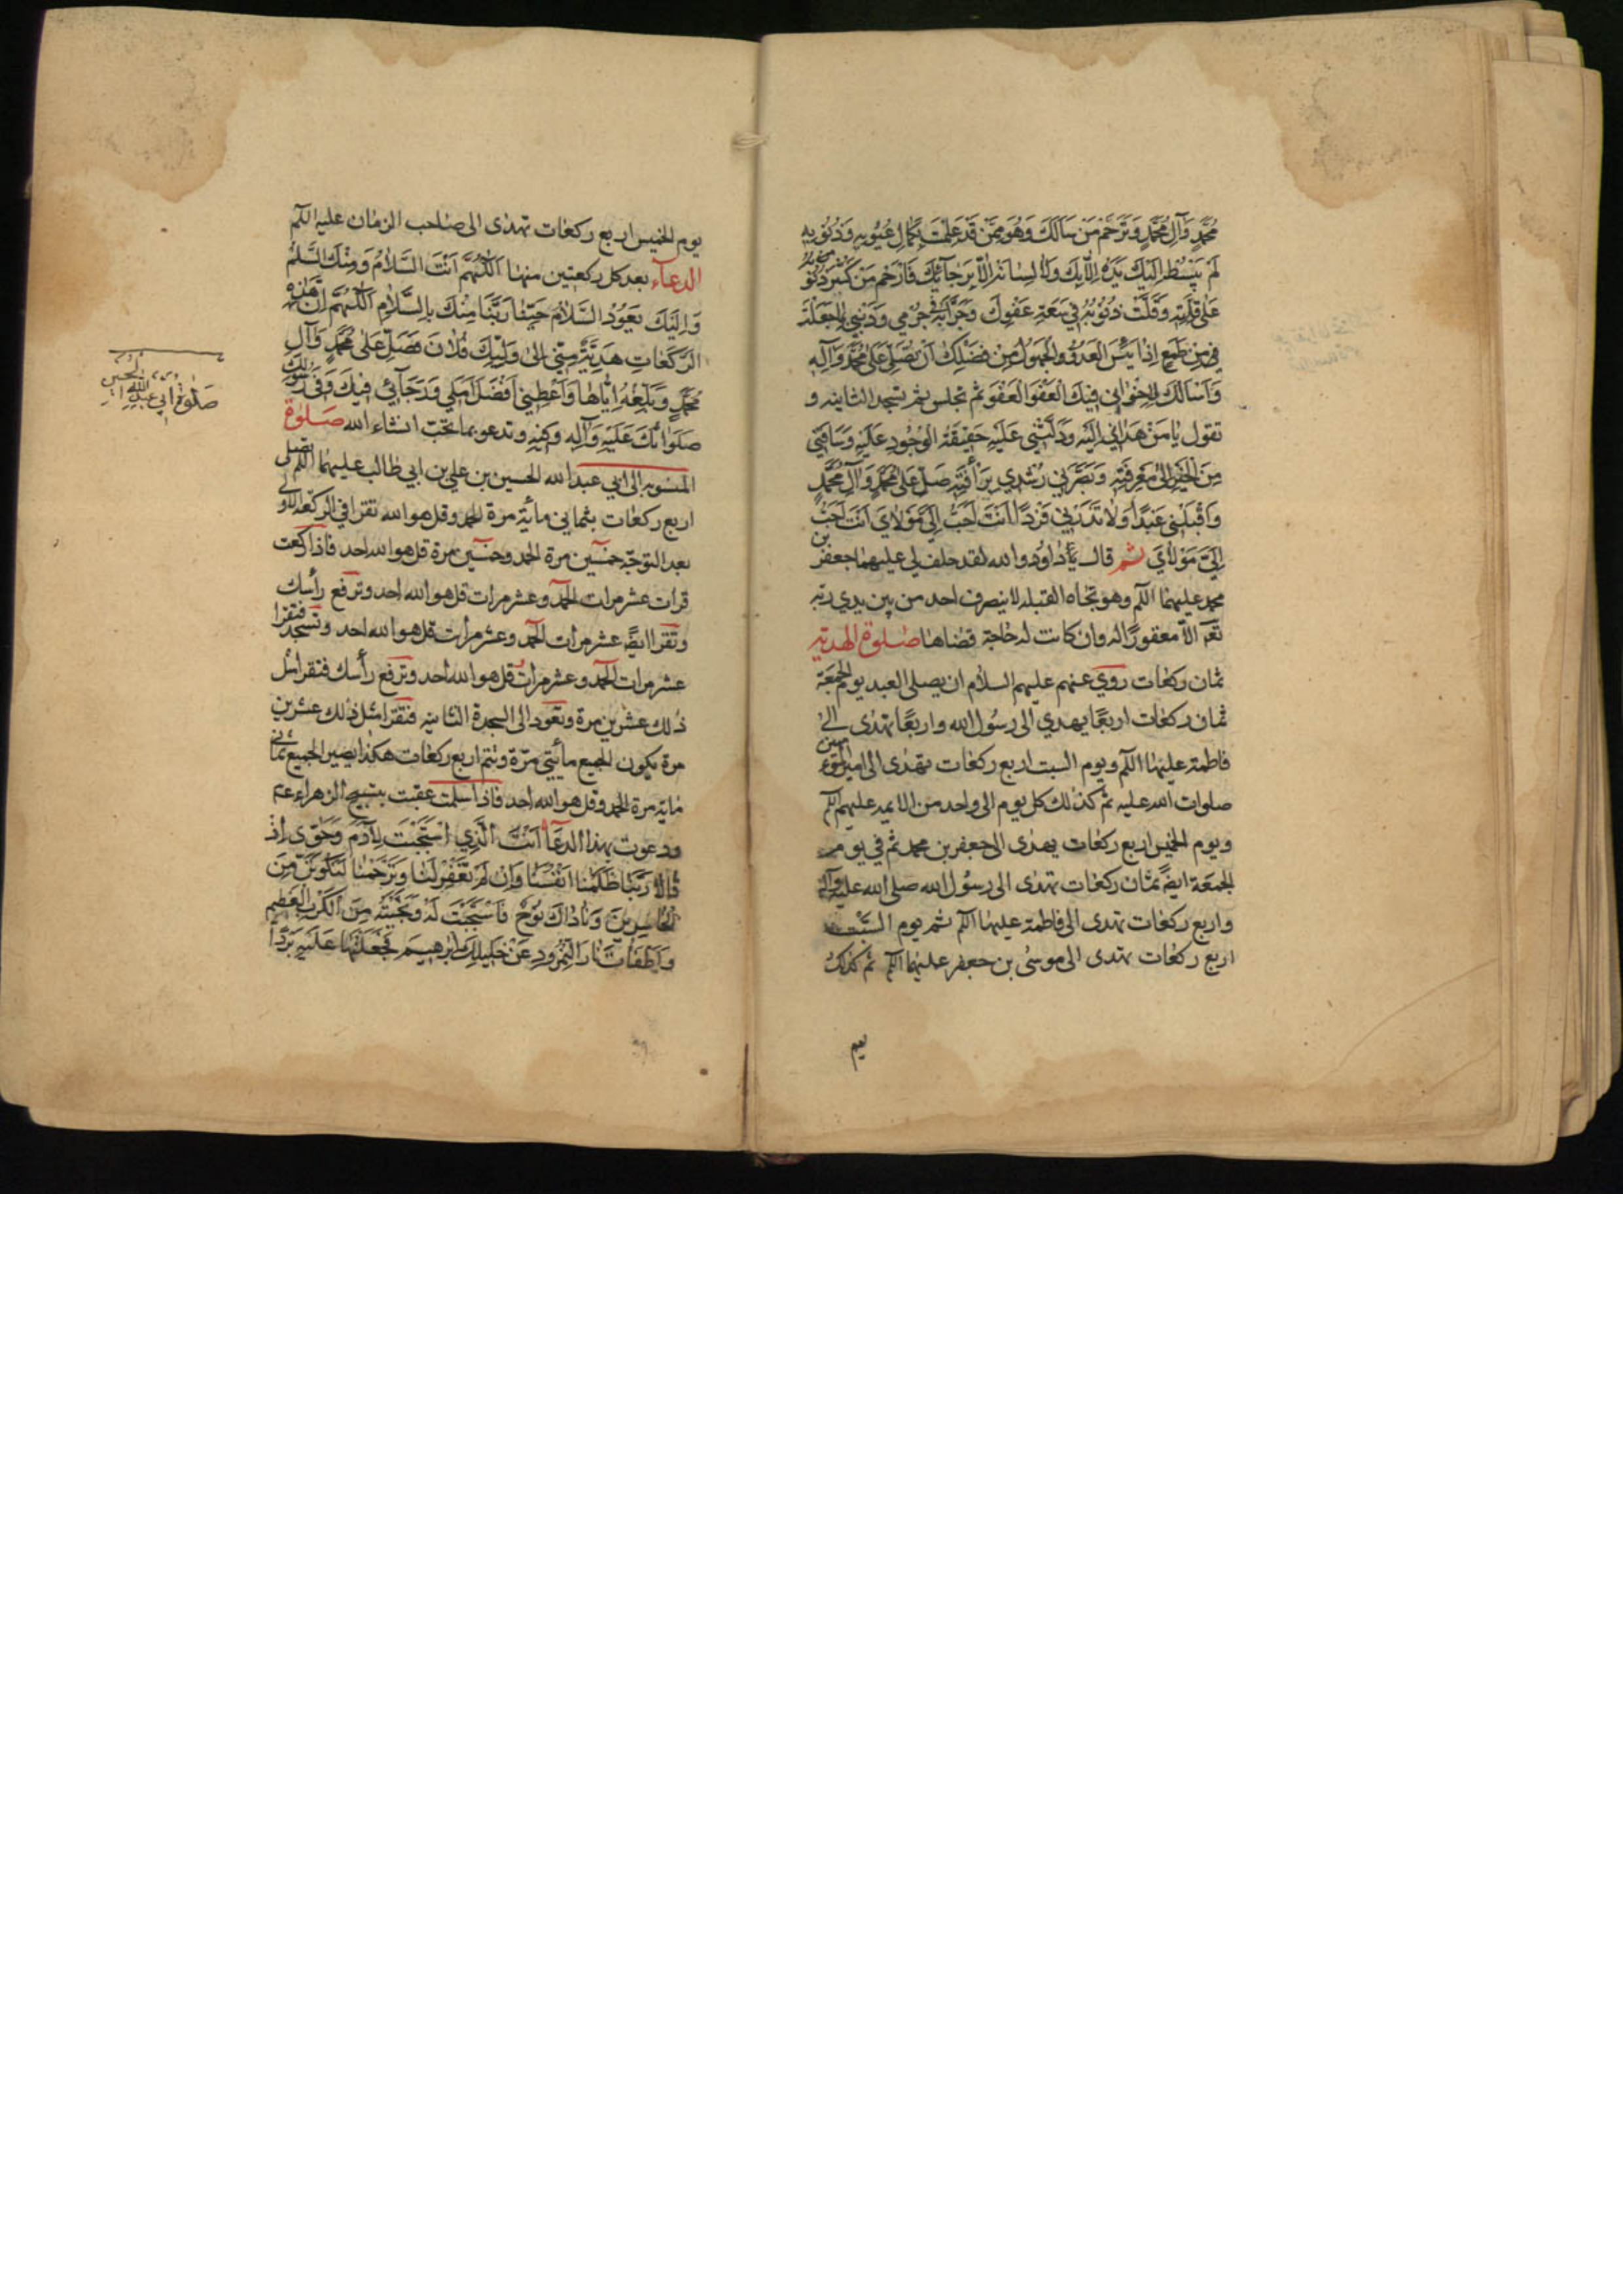 مُحَمَّدٍ وَآلِ مُحَمَّدٍ وَتَرَحَّمْ مَنْ سَأَلَكَ وَهُوَ مِمَّنْ قَدْ عَلِمْتَ بِكَمٰالِ عُيُوبِهِ وَذُنُوبِهِ
لَمْ يَبْسُطْ اِلَيْكَ يَدَهُ اِلّا بِكَ وَلا لِسٰانَهُ اِلّا بِرَجٰائِكَ فَارْحَمْ مَنْ كَثُرَ ذُنُوبُهُ
عَلى قِلَّتِهِ وَقَلَّتْ ذُنُوبُهُ في سَعَةِ عَفْوِكَ وَجَرّٰأَنِي جُرْمي وَذَنْبي بِمٰا جَعَلْتَ
فِيهِ مِنْ طَمَعٍ اِذٰا يَئِسَ الْعَدُوُّ وَالْجَهُولُ مِنْ فَضْلِكَ اَنْ تُصَلِّيَ عَلى مُحَمَّدٍ وَآلِهِ
وَاَسْأَلُكَ لِاِخْوٰاني فِيكَ الْعَفْوَ الْعَفْوَ ثم تجلس ثم تسجد الثانيه و
تقول يٰا مَنْ هَدٰاني اِلَيْهِ وَدَلَّني عَلَيْهِ حَقيقَةُ الْوُجُودِ عَلَيْهِ وَسٰاقَني
مِنَ الْحَيْرَةِ اِلىٰ مَعْرِفَتِهِ وَبَصَّرَني رُشْدي بِرَأْفَتِهِ صَلِّ عَلىٰ مُحَمَّدٍ وَآلِ مُحَمَّدٍ
وَاقْبَلْني عَبْداً وَلا تَذَرْني فَرْداً اَنْتَ اَحَبُّ اِلَيَّ مَوْلايَ اَنْتَ اَحَبُّ
اِلَيَّ مَوْلايَ ثم قال يٰا داود والله لقد حلف لي عليهما جعفر بن
محمد عليهما السلم وهو تجاه القبله لا ينصرف احد من بين يدي ربه
تعم الا مغفورًا له وان كانت له حاجة قضاها صلوة الهدية
ثمان ركعات روي عنهم عليهم السلام ان يصلي العبد يوم الجمعة
ثمان ركعات اربعًا يهدي الى رسول الله واربعًا تهدى الى
فاطمة عليها السلم ويوم السبت اربع ركعات تهدى الى امير المؤمنين
صلوات الله عليه ثم كذلك كل يوم الى واحد من الائمه عليهم السلم
ويوم الخميس اربع ركعات يهدى الى جعفر بن محمد ثم في يوم
الجمعة ايضً ثمان ركعات تهدى الى رسول الله صلى الله عليه وآله
واربع ركعات تهدى الى فاطمة عليها السلم ثم يوم السبت
اربع ركعات تهدى الى موسى بن جعفر عليهما السلم ثم كذلك
يوم
يوم الخميس اربع ركعات تهدى الى صاحب الزمان عليه السلم
الدعاء بعد كل ركعتين منها اَللّهُمَّ اَنْتَ السَّلامُ وَمِنْكَ السَّلامُ
وَاِلَيْكَ يَعُودُ السَّلامُ حَيِّنٰا رَبَّنٰا مِنْكَ بِالسَّلامِ اَللّهُمَّ اِنَّ هٰذِهِ
الرَّكَعٰاتِ هَدِيَّةٌ مِنّي اِلىٰ وَلِيِّكَ فُلانَ فَصَلِّ عَلىٰ مُحَمَّدٍ وَآلِ
مُحَمَّدٍ وَبَلِّغْهُ اِيّٰاهٰا وَاَعْطِني اَفْضَلَ اَمَلي وَرَجٰائي فيكَ وَفي رَسُولِكَ
صَلَوٰاتُكَ عَلَيْهِ وَآلِهِ وَفِيهِ وتدعو بما تحب انشاء الله صلوة
المنسوبه الى ابي عبد الله الحسين بن علي بن ابي طالب عليهما السلم تصلى
اربع ركعات بثماني مائة مرة الحمد وقل هو الله تقرا في الركعه الاولى
بعد التوجّه خمسين مرة الحمد وخمسين مرة قل هو الله احد فاذا ركعت
قرات عشر مرات الحمد وعشر مرات قل هو الله احد وترفع رأسك
وتقرا ايضً عشر مرات الحمد وعشر مرات قل هو الله احد وتسجد فتقرا
عشر مرات الحمد وعشر مرات قل هو الله احد وترفع رأسك فتقرا مثل
ذلك عشرين مرة وتعود الى السجدة الثانيه فتقرا مثل ذلك عشرين
مرة يكون الجميع مأيتي مرّة وتتم اربع ركعات هكذا يصير الجميع ثماني
مايه مرة الحمد وقل هو الله احد فاذا سلمت عقبت بتسبيح الزهراء عم
ودعوت بهذا الدعا اَنْتَ الَّذي اسْتَجَبْتَ لِآدَمَ وَحَوّٰى اِذْ
قٰالا رَبَّنٰا ظَلَمْنٰا اَنْفُسَنٰا وَاِنْ لَمْ تَغْفِرْ لَنٰا وَتَرْحَمْنٰا لَنَكُونَنَّ مِنَ
الْخٰاسِرينَ وَنٰادٰاكَ نُوحٌ فَاسْتَجَبْتَ لَهُ وَنَجَّيْتَهُ مِنَ الْكَرْبِ الْعَظيمِ
وَاَطْفَأْتَ نٰارَ النَّمْرُودِ عَنْ خَليلِكَ اِبْرٰهيمَ فَجَعَلْتَهٰا عَلَيْهِ بَرْداً
صلوة ابي عبد الله الحسين